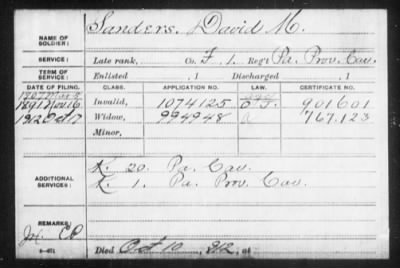 NAME OF SOLDIER: Sanders, David M.
SERVICE: Late rank, Co. F, 1 Reg't Pa. Prov. Cav.
TERM OF SERVICE: Enlisted , 1 Discharged , 1
DATE OF FILING. CLASS. APPLICATION NO. LAW. CERTIFICATE NO.
1891 Nov 16 Invalid, 1074125 901601
1912 Oct 17 Widow, 994948 a 767.123
Minor,
ADDITIONAL SERVICES: K. 20. Pa. Cav.
K. 1. Pa. Prov. Cav.
REMARKS:
Died Oct 10, 1912, at